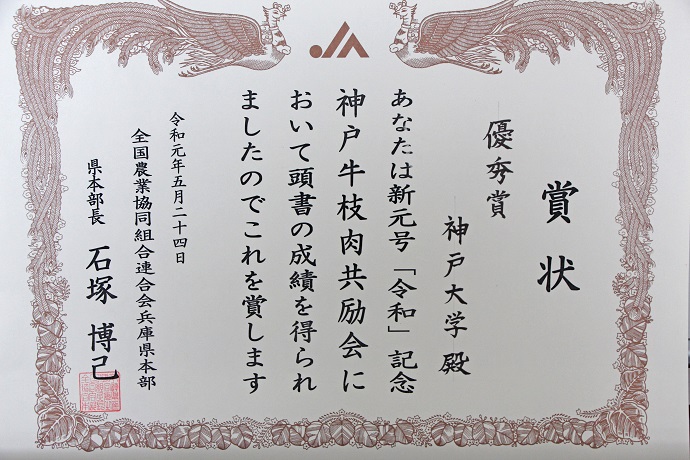 賞状
優秀賞
神戸大学 殿
あなたは新元号「令和」記念
神戸牛枝肉共励会に
おいて頭書の成績を得られ
ましたのでこれを賞します
令和元年五月二十四日
全国農業協同組合連合会兵庫県本部
県本部長 石塚 博己
JA